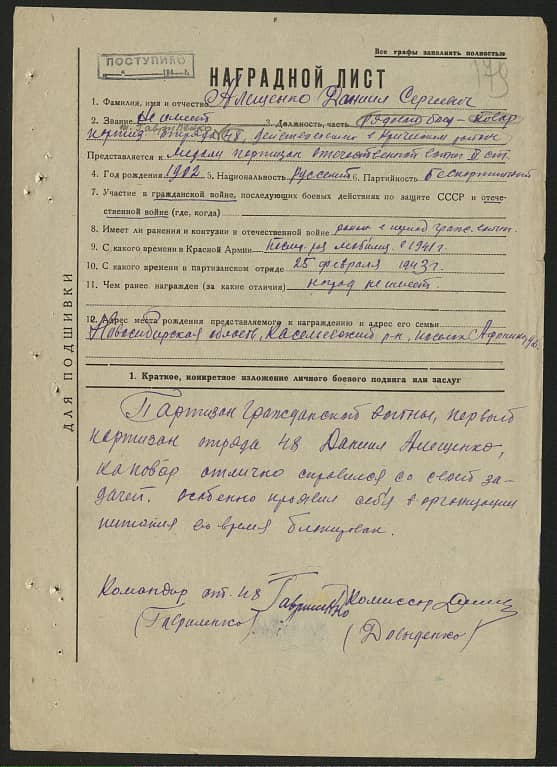 Все графы заполнять полностью
ПОСТУПИЛО
178
НАГРАДНОЙ ЛИСТ
1. Фамилия, имя и отчество Алещенко Даниил Сергеевич
2. Звание Не имеет 3. Должность, часть Рядной боец - повар
партиз. отряда 48, действовавшего в Кричевском районе
т. Гавриленко
Представляется к Медали партизан отечественной войны II ст.
4. Год рождения 1902 5. Национальность русский 6. Партийность беспартийный
7. Участие в гражданской войне, последующих боевых действиях по защите СССР и отече-
ственной войне (где, когда)
8. Имеет ли ранения и контузии в отечественной войне ранен в период гражд. войны.
9. С какого времени в Красной Армии 1941 г.
10. С какого времени в партизанском отряде 25 февраля 1943 г.
11. Чем ранее награжден (за какие отличия) наград не имеет.
12. Адрес места рождения представляемого к награждению и адрес его семьи
Новосибирская область, р-н, поселок
ДЛЯ ПОДШИВКИ
1. Краткое, конкретное изложение личного боевого подвига или заслуг
Партизан Гражданской войны, первый
партизан отряда 48 Даниил Алещенко,
как повар отлично справился со своей за-
дачей. Особенно проявил себя в организации
питания во время блокировки.
Командир от. 48 Гавриленко Комиссар
(Гавриленко) (Довыденко)